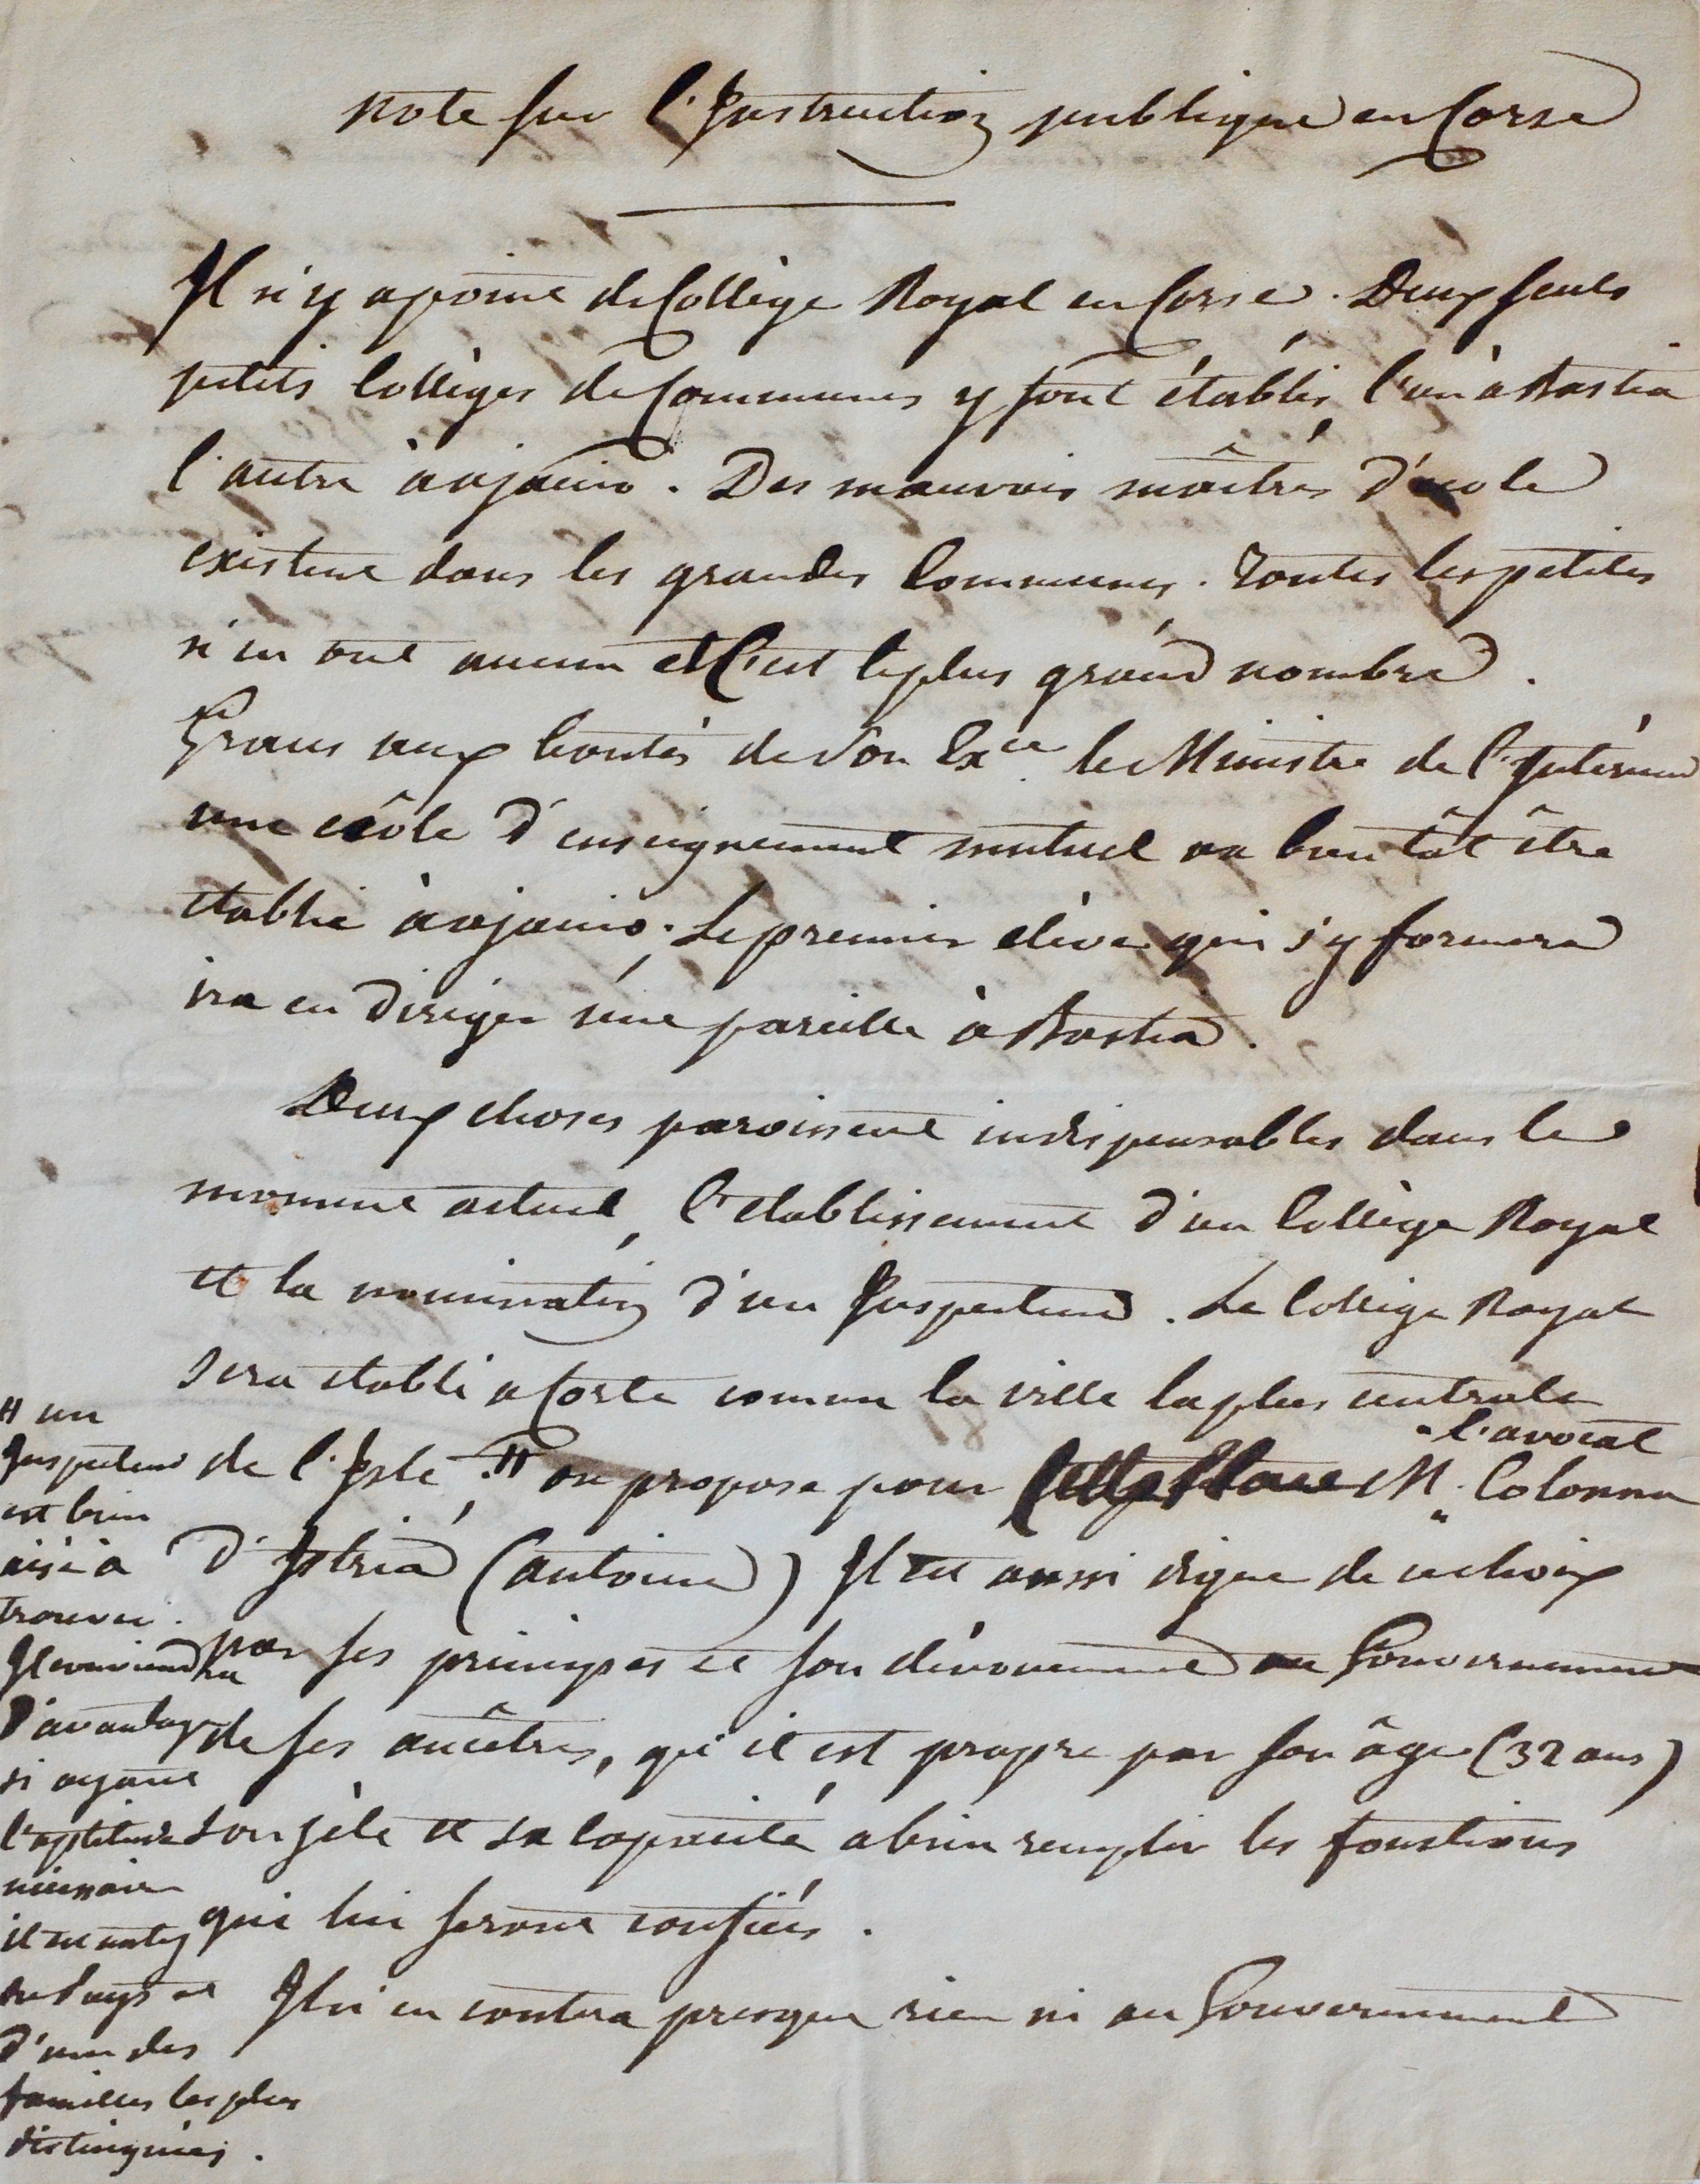 Note sur l'Instruction publique en Corse
Il n'y a point de Collège Royal en Corse. Deux seuls
petits Collèges de Communes y sont établis, l'un à Bastia
l'autre à ajaccio. Des mauvais maîtres d'école
existent dans les grandes Communes. Toutes les petites
n'en ont aucun et C'est le plus grand nombre.
Graces aux bontés de Son Exce. le Ministre de l'Intérieur
une école d'enseignement mutuel va bientôt être
etablie à ajaccio. Le premier elève qui s'y formera
ira en diriger une pareille à Bastia.
Deux choses paroissent indispensables dans le
moment actuel, l'etablissement d'un Collège Royal
et la nomination d'un Inspecteur. Le Collège Royal
sera etabli a Corte comme la ville la plus centrale
de l'Isle. # on propose pour cette place M. l'avocat Colonna
d'Istria (antoine) Il est aussi digne de ce choix
par ses principes et son dévouement au Gouvernement
de ses ancêtres, qu'il est propre par son âge (32 ans)
son zèle et sa capacité a bien remplir les fonctions
qui lui seront confiées.
Il n'en contera presque rien ni au Gouvernement
# un
Inspecteur
est bien
aisé à
trouver.
Il conviendra
d'avantage
si ayant
l'aptitude
nécessaire
il est natif
du Pays et
d'une des
familles les plus
distinguées.